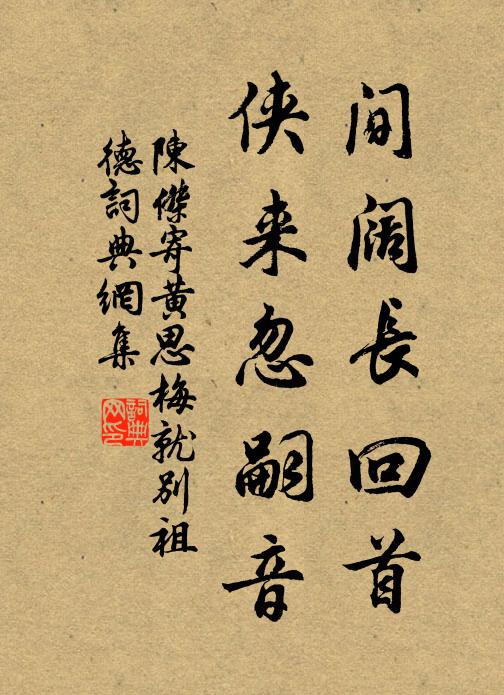 間闊長回首
侠来忽嗣音
陳傑寄黄思梅就别祖
德詞典網集
詞典網印